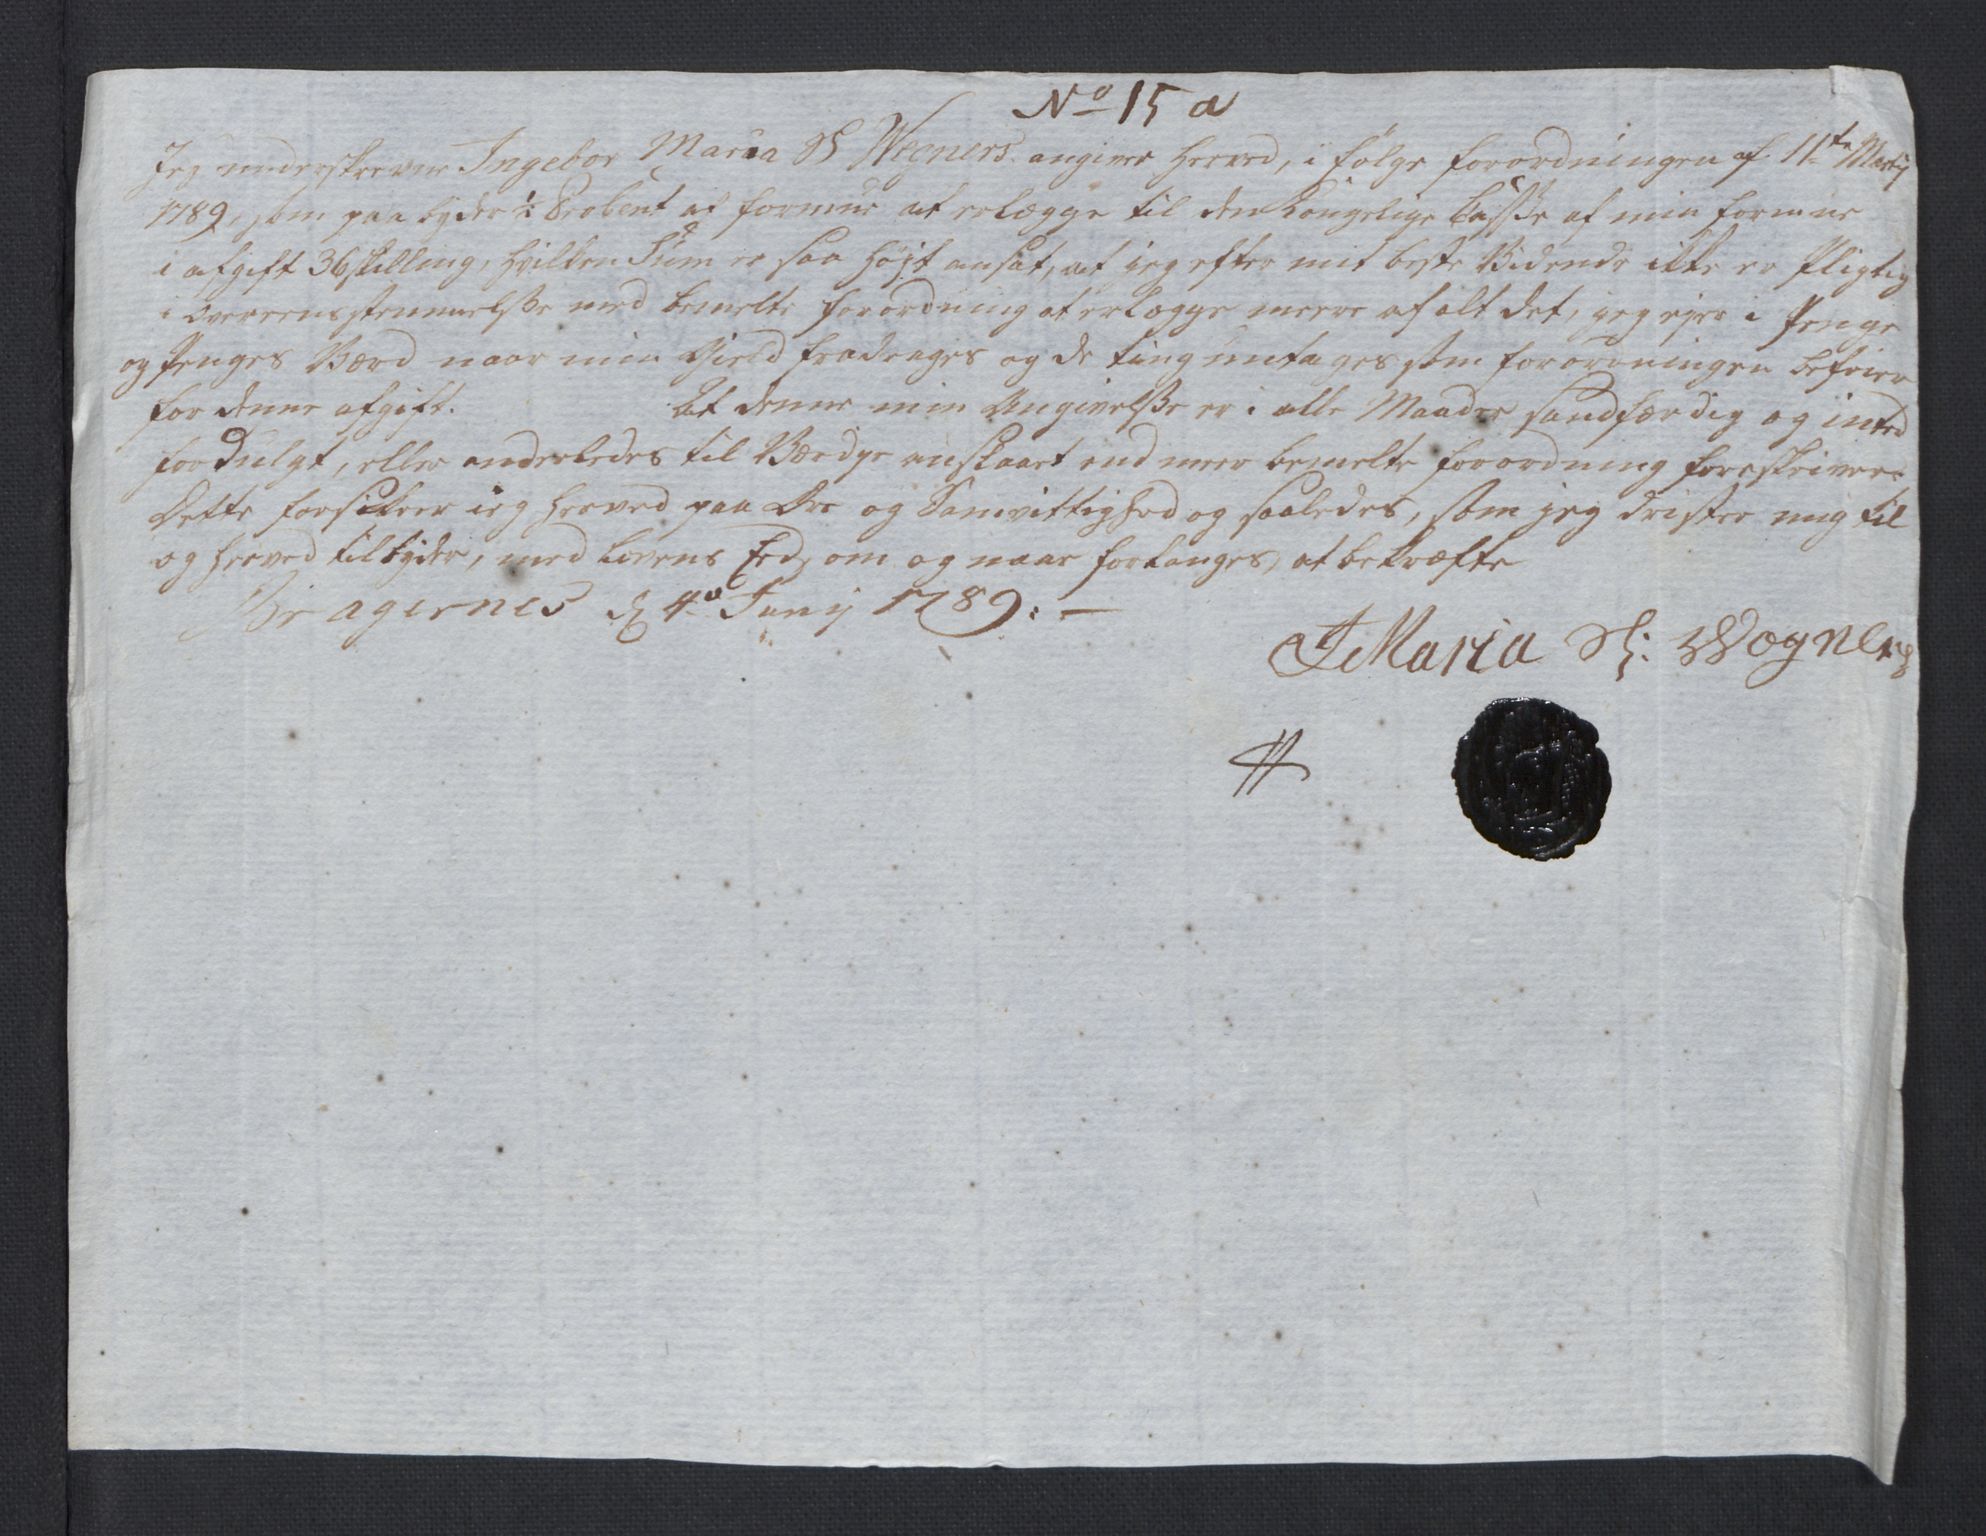 No 15 a
Jeg underskrevne Ingebor Maria Sl Wegners angiver herved, i følge forordningen af 11te Martij
1789, som paabyder ½ Procent af formue at erlægge til den Kongelige Casse af min formue
i afgift 36 skilling, hvilken Sum er saa høyt ansat, at jeg efter mit beste Vidende ikke er Pligtig
i Overeensstemmelse med bemelte forordning at erlægge meere af alt det, jeg ejer i Penge
og Penges Værd naar min Gield fradrages og de ting untages som forordningen befrier
for denne afgift. At denne min Angivelse er i alle Maader sandfærdig og inted
fordulgt, eller anderledes til Værdye anslaaet end meer bemelte forordning foreskriver.
Dette forsikrer ieg herved paa Ære og Samvittighed og saaledes, som jeg drister mig til
og herved tilbyder, med Lovens Eed, om og naar forlanges, at bekræfte
Bragernes d 4de Junij 1789. —
I Maria Sl: Wægners